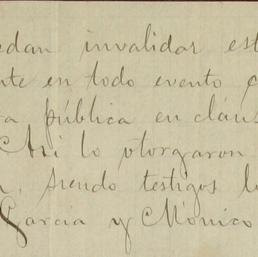 edan invalidar est
nte en todo evento c
ra pública en cláus
Así lo otorgaron
n, siendo testigos lo
García y Mónico